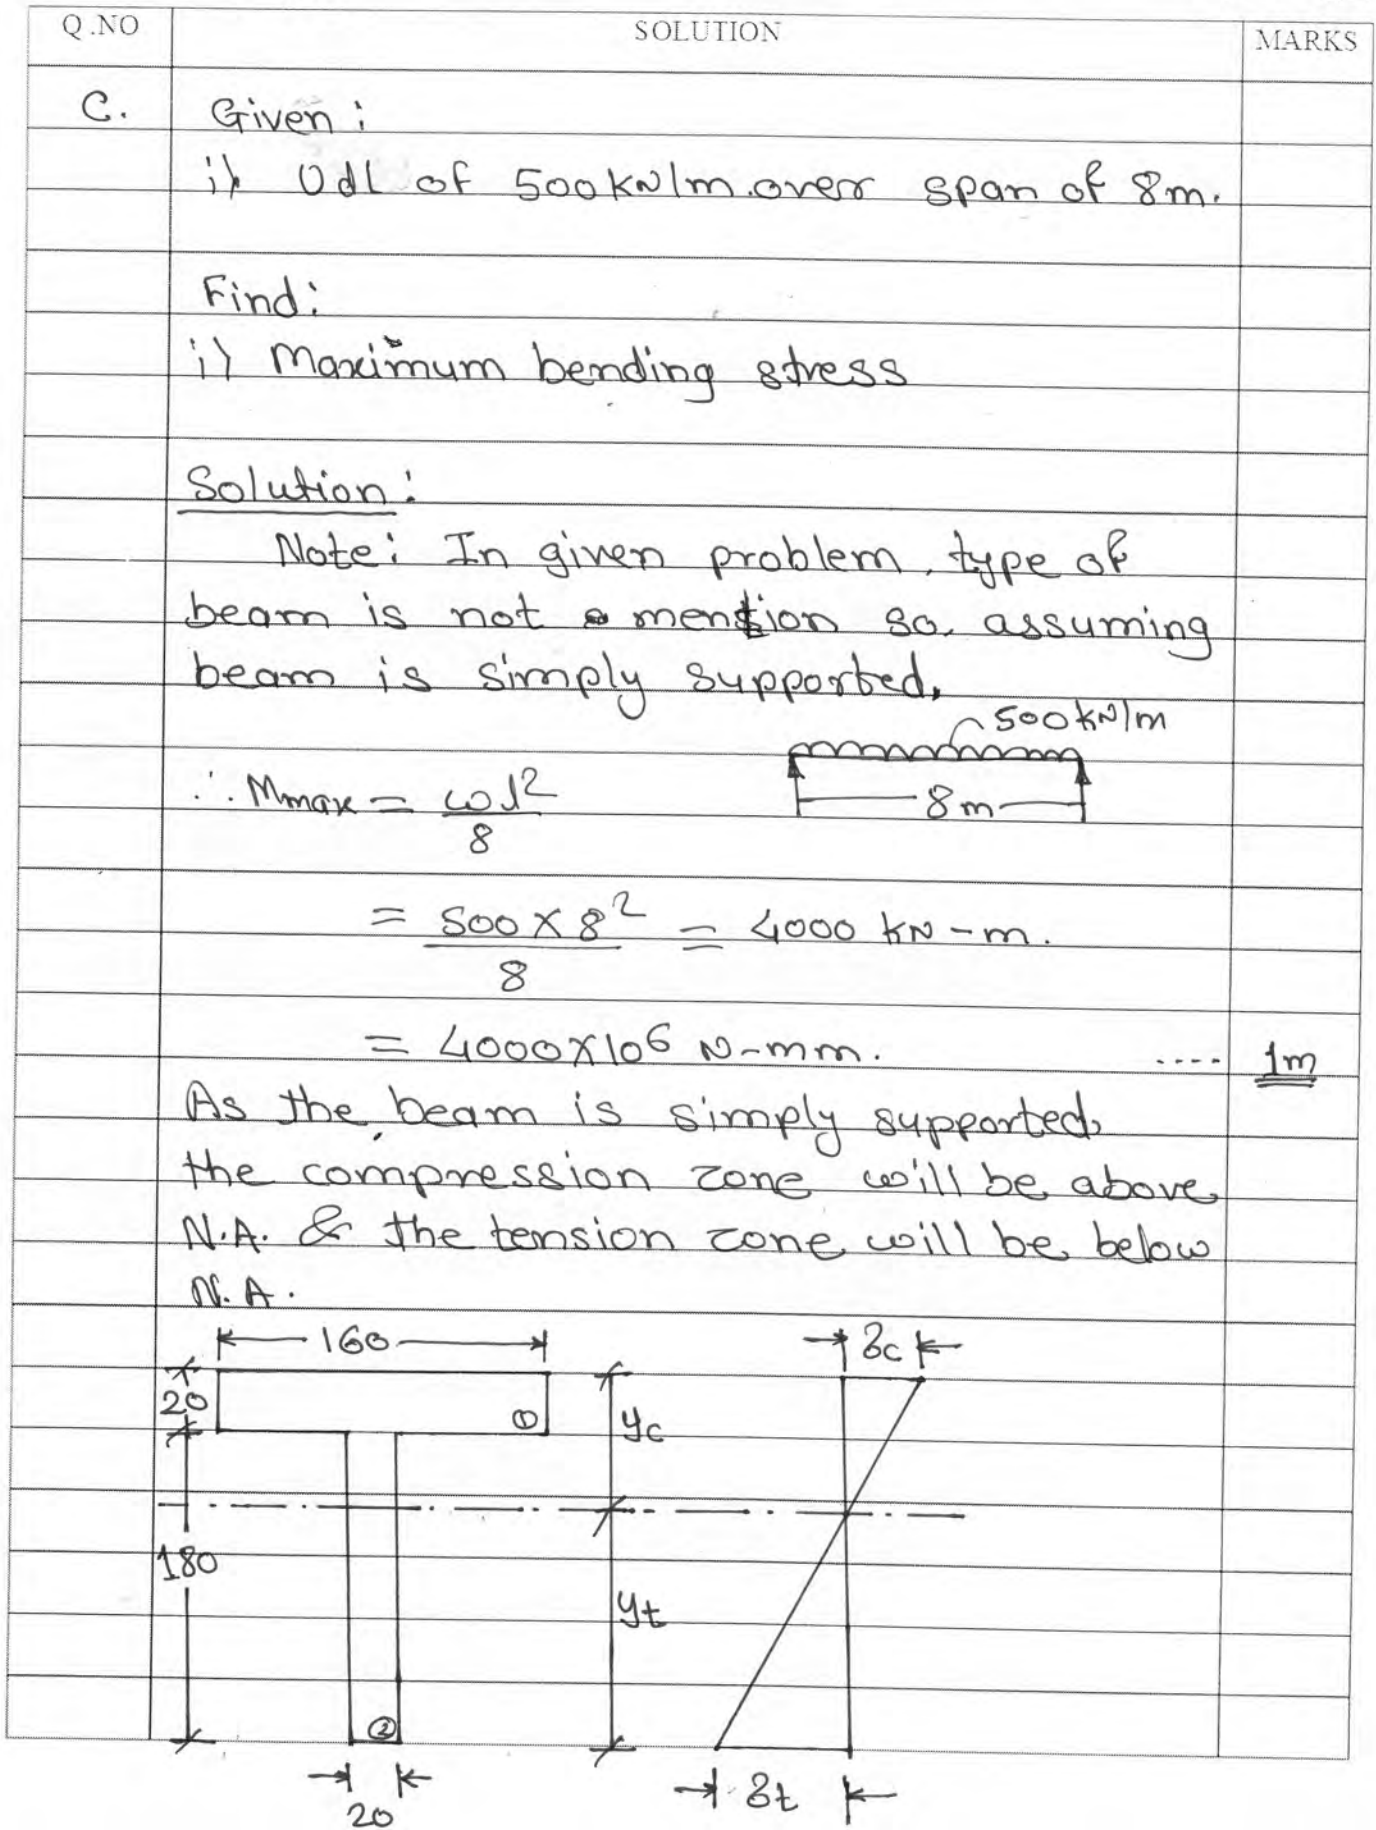 Q.NO SOLUTION MARKS
C. Given:
i) Udl of 500kN/m.over span of 8m.
Find:
i) Maximum bending stress
Solution:
Note: In given problem, type of
beam is not mention so, assuming
beam is simply supported.
500kN/m
8m
∴ Mmax = ωl²/8
= 500×8²/8 = 4000 kN-m.
= 4000×10⁶ N-mm. .... 1m
As the beam is simply supported,
the compression zone will be above
N.A. & the tension zone will be below
N.A.
160
20
①
yc
180
yt
②
20